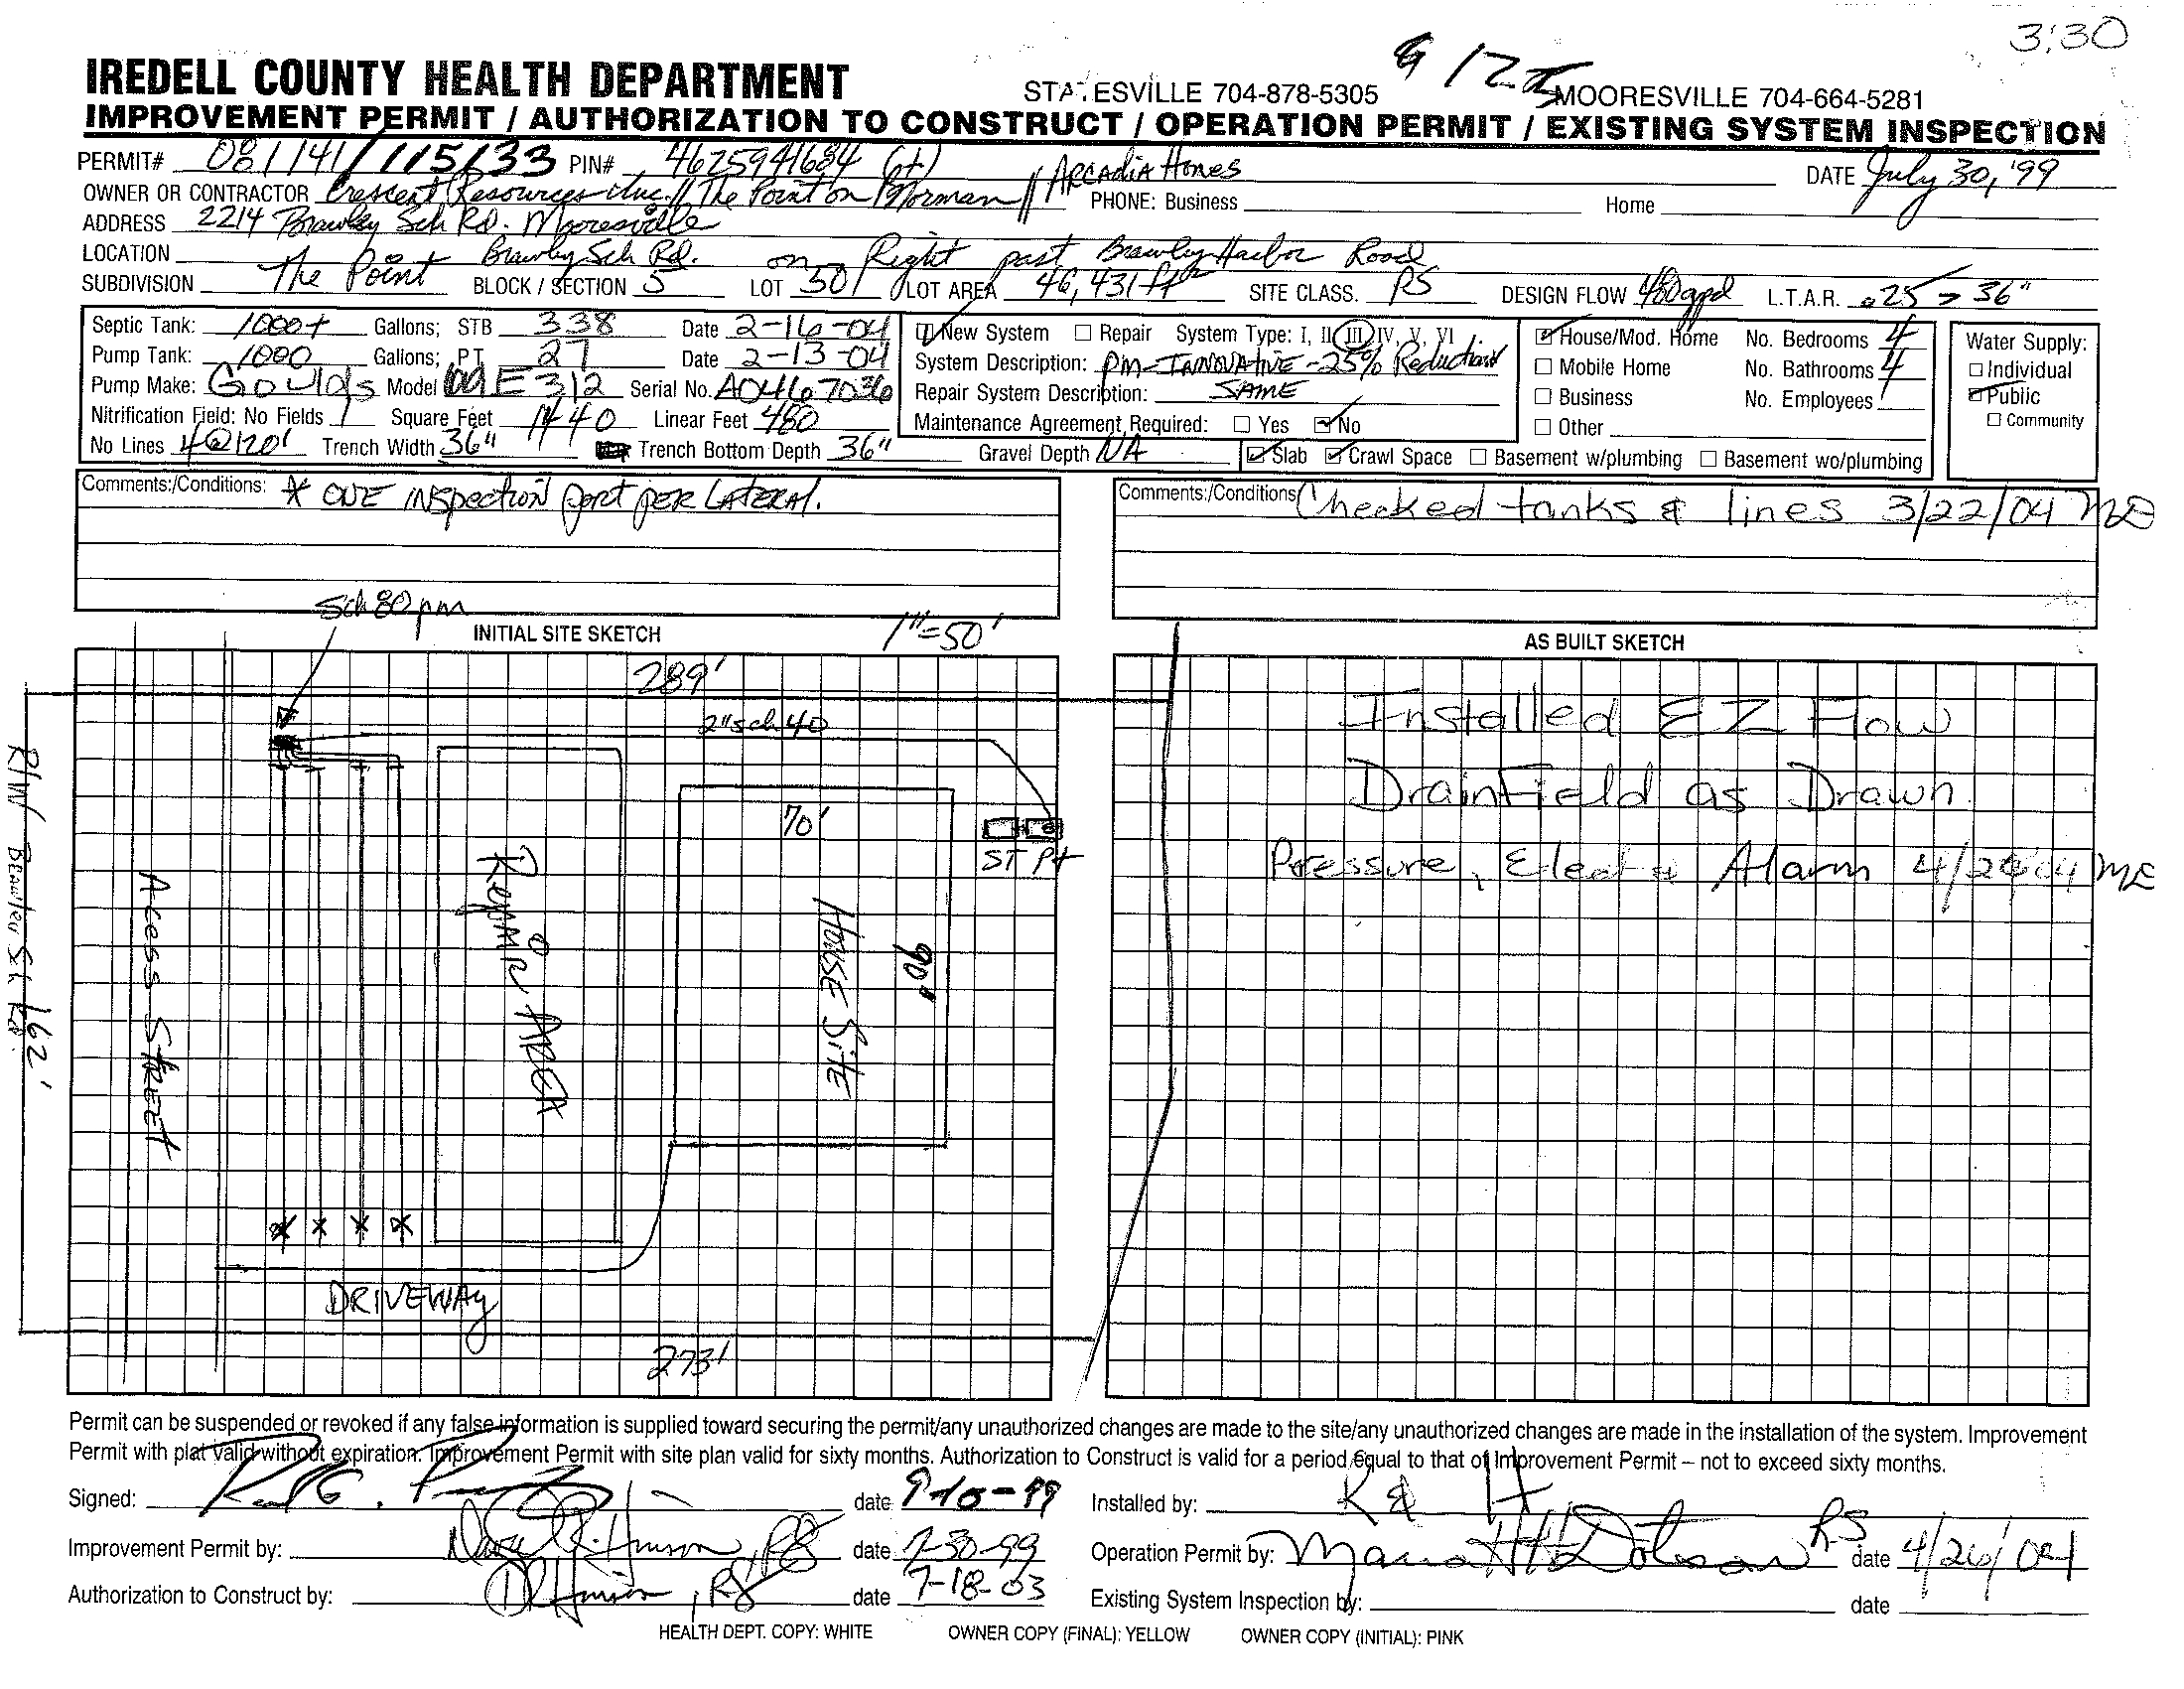 3:30
IREDELL COUNTY HEALTH DEPARTMENT STATESVILLE 704-878-5305 MOORESVILLE 704-664-5281
IMPROVEMENT PERMIT / AUTHORIZATION TO CONSTRUCT / OPERATION PERMIT / EXISTING SYSTEM INSPECTION
PERMIT# 081141/115133 PIN# 4625941684 (+) DATE July 30, '99
OWNER OR CONTRACTOR Crescent Resources Inc. // The Point on Norman // ARCADIA HOMES PHONE: Business Home
ADDRESS 2214 Brawley Sch Rd. Mooresville
LOCATION Brawley Sch Rd. on Right past Brawley Harbor Road
SUBDIVISION The Point BLOCK / SECTION 5 LOT 50 LOT AREA 46,431 ft² SITE CLASS. PS DESIGN FLOW 480gpd L.T.A.R. .25 > 36"
Septic Tank: 1000+ Gallons; STB 338 Date 2-16-04
Pump Tank: 1000 Gallons; PT 27 Date 2-13-04
Pump Make: Goulds Model WE312 Serial No. A0467036
Nitrification Field: No Fields 1 Square Feet 1440 Linear Feet 480
No Lines 4@120' Trench Width 36" Trench Bottom Depth 36" Gravel Depth N/A
New System Repair System Type: I, II, III, IV, V, VI
System Description: PM-INNOVATIVE-25% Reduction
Repair System Description: SAME
Maintenance Agreement Required: Yes No
Slab Crawl Space Basement w/plumbing Basement wo/plumbing
House/Mod. Home No. Bedrooms 4
Mobile Home No. Bathrooms 4
Business No. Employees
Other
Water Supply:
Individual
Public
Community
Comments:/Conditions: * ONE INSpection port per LATERAL.
Comments:/Conditions Checked tanks & lines 3/22/04 MD
Sch 80 pm
INITIAL SITE SKETCH 1"=50'
AS BUILT SKETCH
289'
2" sch 40
70'
ST Pt
Repair AREA
House Site
90'
Access Street
R/W Brawley Sch Rd.
162'
DRIVEWAY
273'
Installed EZ Flow
Drainfield as Drawn
Pressure, Elect & Alarm 4/26/04 MD
Permit can be suspended or revoked if any false information is supplied toward securing the permit/any unauthorized changes are made to the site/any unauthorized changes are made in the installation of the system. Improvement
Permit with plat valid without expiration. Improvement Permit with site plan valid for sixty months. Authorization to Construct is valid for a period equal to that of Improvement Permit – not to exceed sixty months.
Signed: date 9-10-99 Installed by: R & H
Improvement Permit by: date 7-30-99 Operation Permit by: RS date 4/26/04
Authorization to Construct by: date 7-18-03 Existing System Inspection by: date
HEALTH DEPT. COPY: WHITE OWNER COPY (FINAL): YELLOW OWNER COPY (INITIAL): PINK